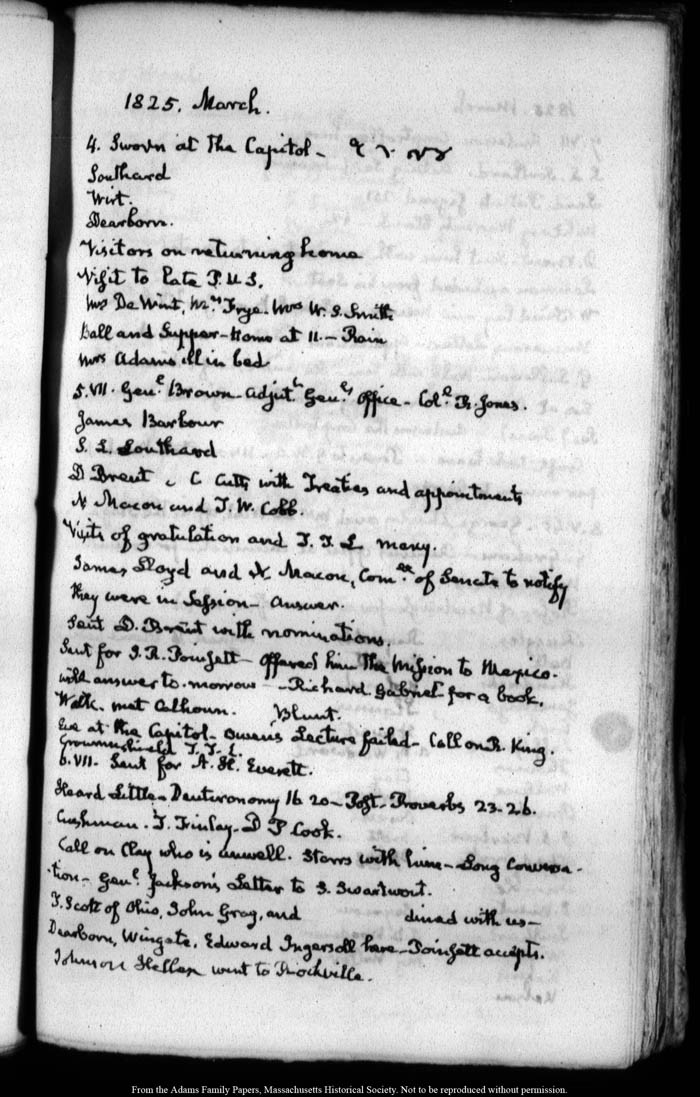 1825. March.
4. Sworn at the Capitol -
Southard
Wirt.
Dearborn.
Visitors on returning home
Visit to late P. U. S.
Mrs De Wint, Mrs Frye. Mrs W. S. Smith
Ball and Supper - Home at 11. - Rain
Mrs Adams ill in bed.
5. VII. Genl Brown - Adjt Genl's Office - Coll R. Jones.
James Barbour
S. L. Southard
D Brent C Cutts with Treaties and appointments
N Macon and T. W. Cobb.
Visits of gratulation and T. T. L. many.
James Lloyd and N. Macon, Comee of Senate to notify
they were in Session - answer.
Sent D. Brent with nominations.
Sent for J. R. Poinsett - offered him the Mission to Mexico.
will answer to-morrow - Richard Gabriel for a book.
Walk. met Calhoun. Blunt.
Eve at the Capitol - Owen's Lecture failed - Call on R. King.
Crowninshield T. T. L.
6. VII. Sent for A. H. Everett.
Heard Little - Deuteronomy 16 20 - Post - Proverbs 23. 26.
Cushman. J. Finlay - D P Cook.
Call on Clay who is unwell. Storrs with him - Long Conversa-
tion - Genl Jackson's Letter to S. Swartwout.
T. Scott of Ohio, John Gray, and dined with us -
Dearborn, Wingate, Edward Ingersoll here - Poinsett accepts.
Johnson Hellen went to Rockville.
From the Adams Family Papers, Massachusetts Historical Society. Not to be reproduced without permission.